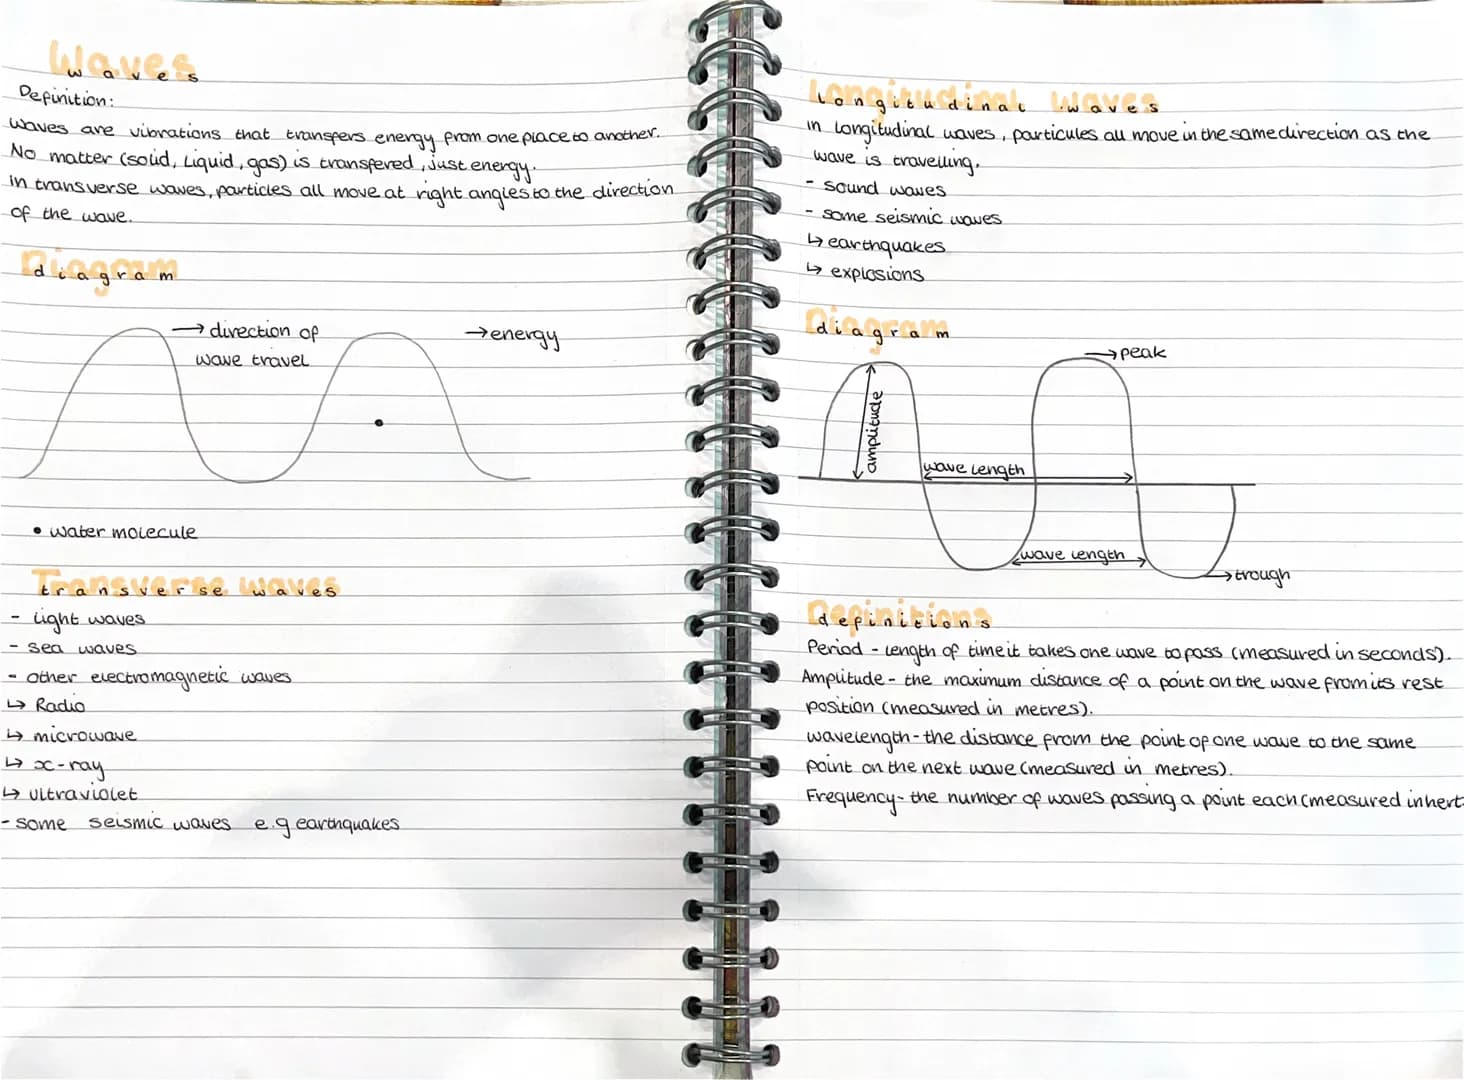 Waves
waves
Definition:
waves are vibrations that transfers energy from one place to another.
No matter (solid, liquid, gas) is transfered, just energy.
in transverse waves, particles all move at right angles to the direction
of the wave.
Diagram
diagram
→ direction of
wave travel
→ energy
• water molecule
Transverse waves
transverse waves
- light waves
- sea waves
- other electromagnetic waves
↳ Radio
↳ microwave
↳ x-ray
↳ ultraviolet
- some seismic waves e.g earthquakes
Longitudinal waves
longitudinal waves
in longitudinal waves, particules all move in the same direction as the
wave is travelling.
- sound waves
- some seismic waves
↳ earthquakes
↳ explosions
Diagram
diagram
→ peak
amplitude
wave length
wave length
→ trough
Definitions
definitions
Period - length of time it takes one wave to pass (measured in seconds).
Amplitude - the maximum distance of a point on the wave from its rest
position (measured in metres).
wavelength - the distance from the point of one wave to the same
point on the next wave (measured in metres).
Frequency - the number of waves passing a point each (measured in hert